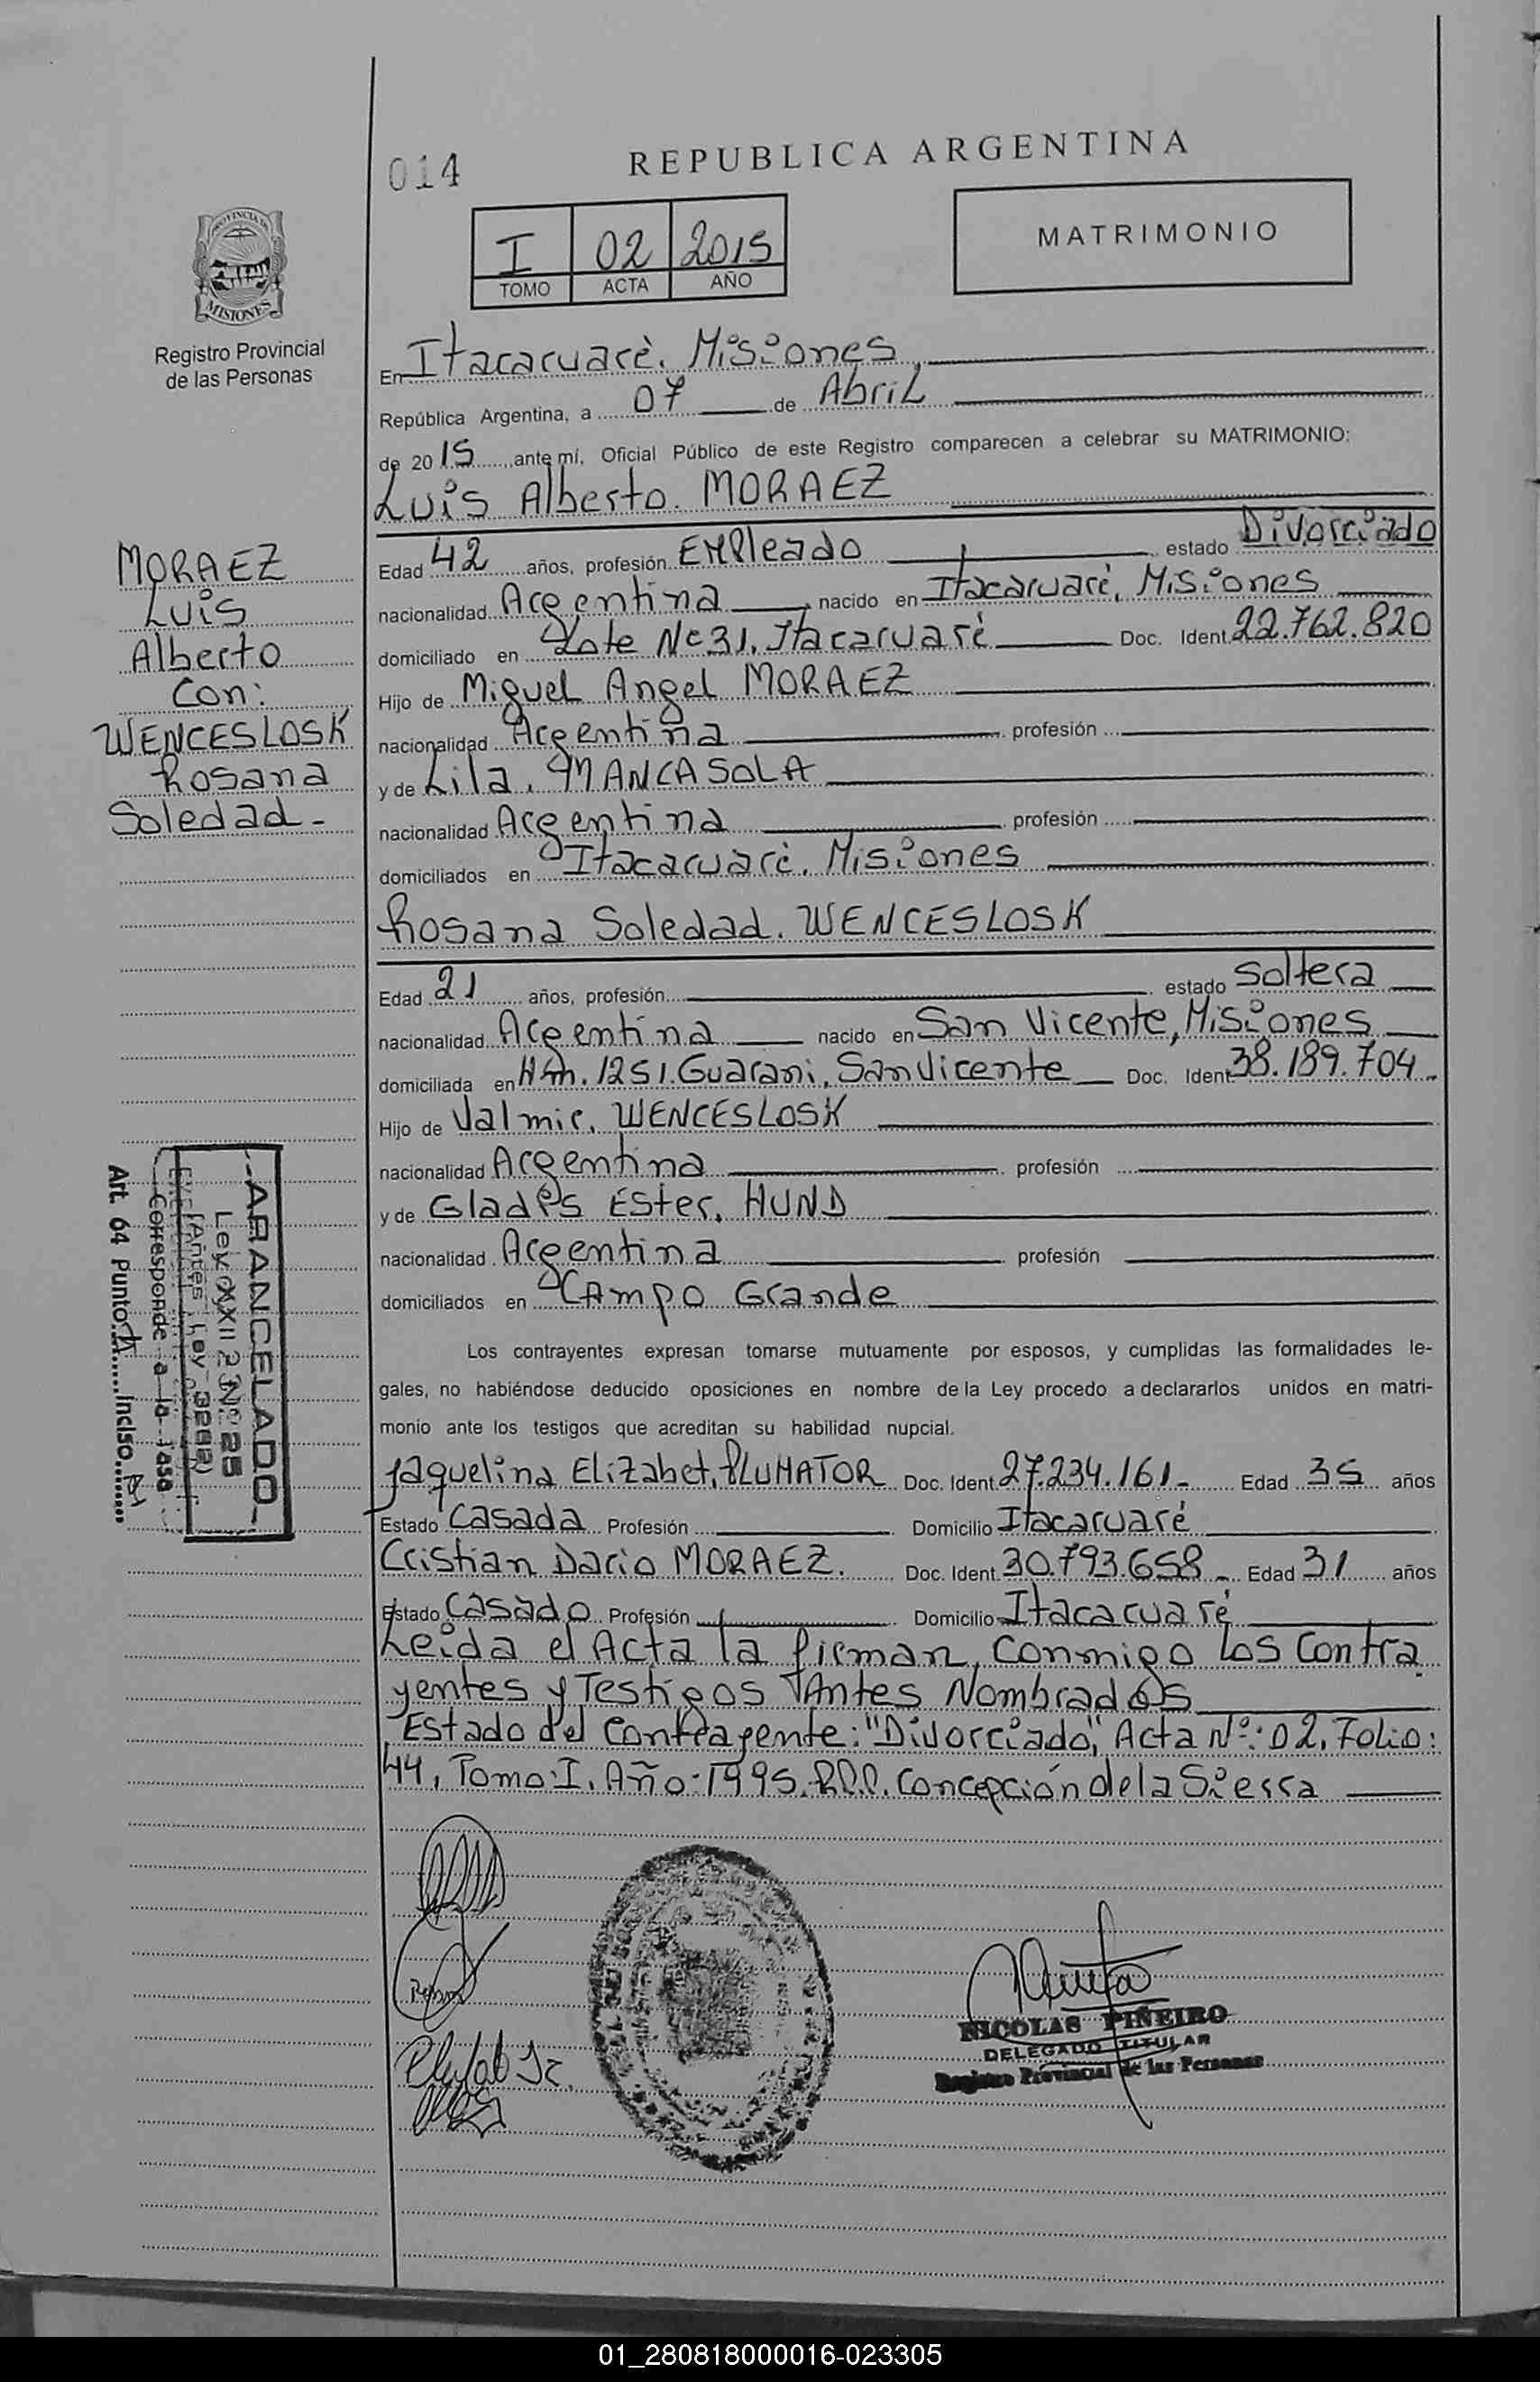 014
REPUBLICA ARGENTINA
I 02 2015
TOMO ACTA AÑO
MATRIMONIO
PROVINCIA DE
MISIONES
Registro Provincial
de las Personas
En Itacaruaré, Misiones
República Argentina, a 07 de Abril
de 2015 ante mí, Oficial Público de este Registro comparecen a celebrar su MATRIMONIO:
Luis Alberto. MORAEZ
Edad 42 años, profesión EMPleado estado Divorciado
nacionalidad Argentina nacido en Itacaruaré, Misiones
domiciliado en Lote Nº 31. Itacaruaré Doc. Ident. 22.762.820
Hijo de Miguel Angel MORAEZ
nacionalidad Argentina profesión
y de Lila. MANCASOLA
nacionalidad Argentina profesión
domiciliados en Itacaruaré, Misiones
Rosana Soledad. WENCESLOSK
Edad 21 años, profesión estado Soltera
nacionalidad Argentina nacido en San Vicente, Misiones
domiciliada en Km. 1251. Guarani, San Vicente Doc. Ident 38.189.704.
Hijo de Valmir. WENCESLOSK
nacionalidad Argentina profesión
y de Gladys Ester. HUND
nacionalidad Argentina profesión
domiciliados en CAmpo Grande
Los contrayentes expresan tomarse mutuamente por esposos, y cumplidas las formalidades le-
gales, no habiéndose deducido oposiciones en nombre de la Ley procedo a declararlos unidos en matri-
monio ante los testigos que acreditan su habilidad nupcial.
Jaquelina Elizabet, PLUHATOR Doc. Ident 27.234.161- Edad 35 años
Estado Casada Profesión Domicilio Itacaruaré
Cristian Dario MORAEZ. Doc. Ident. 30.793.658- Edad 31 años
Estado Casado Profesión Domicilio Itacaruaré
Leida el Acta la firman, Conmigo los Contra
yentes y Testigos Antes Nombrados
Estado del Contrayente: "Divorciado", Acta Nº: 02, Folio:
44, Tomo: I. Año: 1995. R.P.P. Concepción de la Sierra
MORAEZ
Luis
Alberto
Con:
WENCESLOSK
Rosana
Soledad-
ARANCELADO
Ley XXII Nº 25
(Antes Ley 3262)
Corresponde a la tasa
Art. 64 Punto A Inciso
NICOLAS PIÑEIRO
DELEGADO TITULAR
Registro Provincial de las Personas
01_280818000016-023305